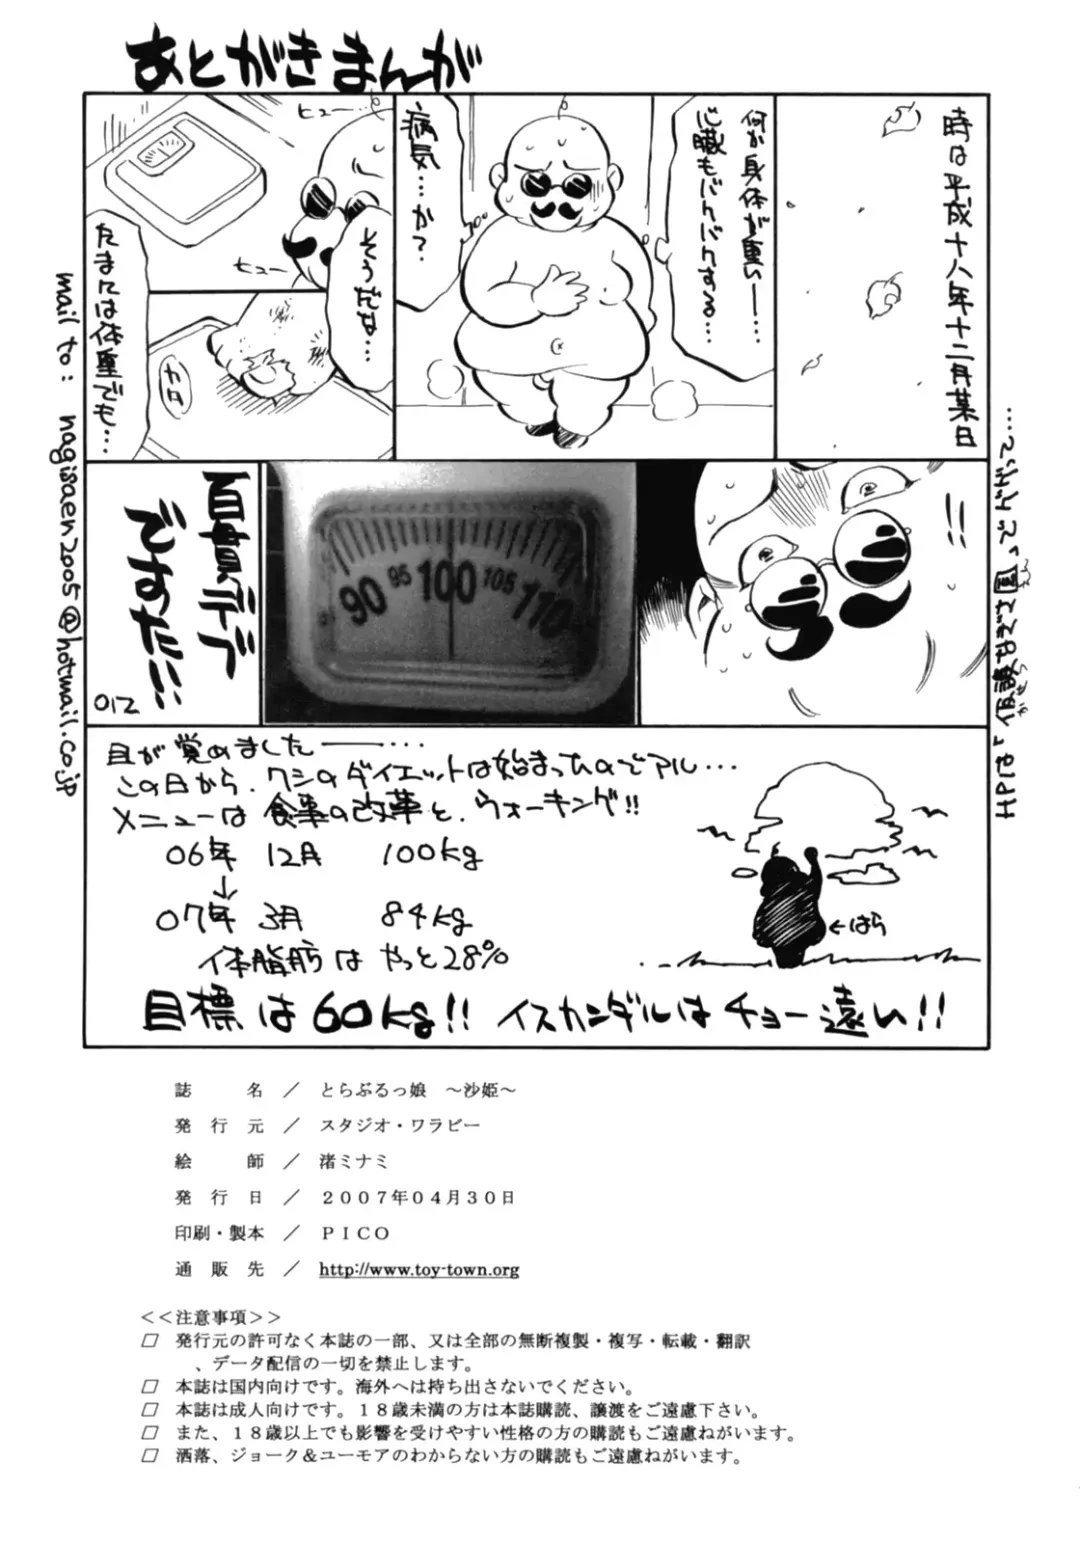 あとがきまんが
時は平成十八年十二月某日
何か身体が重い―
心臓もバクバクする…
病気…か?
ヒュー…
ヒュー
そうだな…
たまには体重でも…
!!
90 95 100 105 110
百貫デブ
でずだ!!…
012
目が覚めました―…
この日から、ワシのダイエットは始まったのでアル…
メニューは食事の改革と、ウォーキング!!
06年 12月 100kg
↓
07年 3月 84kg
体脂肪はやっと28%
←はら
目標は60kg!! イスカンダルはチョー遠い!!
mail to: nagisaen2005@hotmail.co.jp
誌　名 ／ とらぶるっ娘 ～沙姫～
発行元 ／ スタジオ・ワラビー
絵　師 ／ 渚ミナミ
発行日 ／ 2007年04月30日
印刷・製本 ／ PICO
通販先 ／ http://www.toy-town.org
<<注意事項>>
□ 発行元の許可なく本誌の一部、又は全部の無断複製・複写・転載・翻訳
、データ配信の一切を禁止します。
□ 本誌は国内向けです。海外へは持ち出さないでください。
□ 本誌は成人向けです。18歳未満の方は本誌購読、譲渡をご遠慮下さい。
□ また、18歳以上でも影響を受けやすい性格の方の購読もご遠慮ねがいます。
□ 洒落、ジョーク＆ユーモアのわからない方の購読もご遠慮ねがいます。